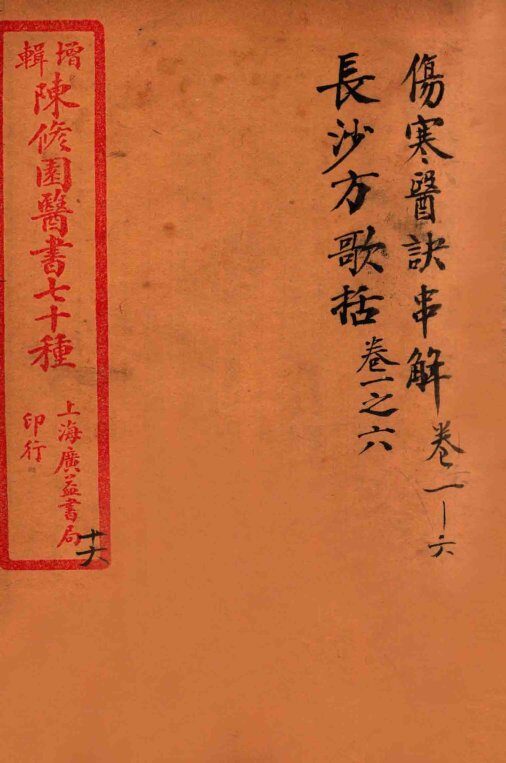 傷寒醫訣串解 卷一－六
長沙方歌括 卷一之六
增輯
陳修園醫書七十種
上海廣益書局
印行
十六